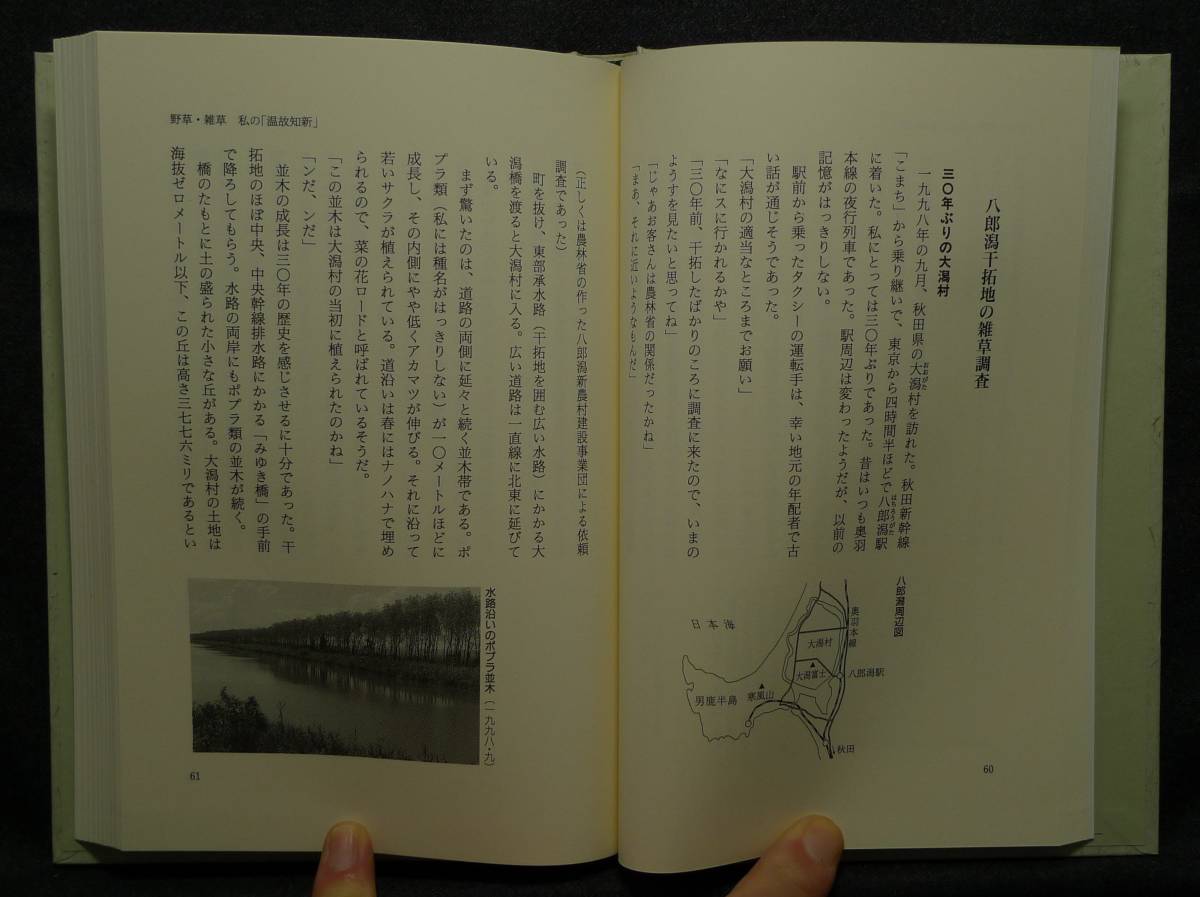 八郎潟干拓地の雑草調査
三〇年ぶりの大潟村
一九九八年の九月、秋田県の大潟村を訪れた。秋田新幹線
「こまち」から乗り継いで、東京から四時間半ほどで八郎潟駅
に着いた。私にとっては三〇年ぶりであった。昔はいつも奥羽
本線の夜行列車であった。駅周辺は変わったようだが、以前の
記憶がはっきりしない。
駅前から乗ったタクシーの運転手は、幸い地元の年配者で古
い話が通じそうであった。
「大潟村の適当なところまでお願い」
「なにスに行かれるかや」
「三〇年前、干拓したばかりのころに調査に来たので、いまの
ようすを見たいと思ってね」
「じゃあお客さんは農林省の関係だったかね」
「まあ、それに近いようなもんだ」
八郎潟周辺図
日本海
奥羽本線
大潟村
大潟富士
八郎潟駅
寒風山
男鹿半島
秋田
60
野草・雑草 私の「温故知新」
(正しくは農林省の作った八郎潟新農村建設事業団による依頼
調査であった)
町を抜け、東部承水路(干拓地を囲む広い水路)にかかる大
潟橋を渡ると大潟村に入る。広い道路は一直線に北東に延びて
いる。
まず驚いたのは、道路の両側に延々と続く並木帯である。ポ
プラ類(私には種名がはっきりしない)が一〇メートルほどに
成長し、その内側にやや低くアカマツが伸びる。それに沿って
若いサクラが植えられている。道沿いは春にはナノハナで埋め
られるので、菜の花ロードと呼ばれているそうだ。
「この並木は大潟村の当初に植えられたのかね」
「ンだ、ンだ」
並木の成長は三〇年の歴史を感じさせるに十分であった。干
拓地のほぼ中央、中央幹線排水路にかかる「みゆき橋」の手前
で降ろしてもらう。水路の両岸にもポプラ類の並木が続く。
橋のたもとに土の盛られた小さな丘がある。大潟村の土地は
海抜ゼロメートル以下、この丘は高さ三七七六ミリであるとい
水路沿いのポプラ並木(一九九八・九)
61